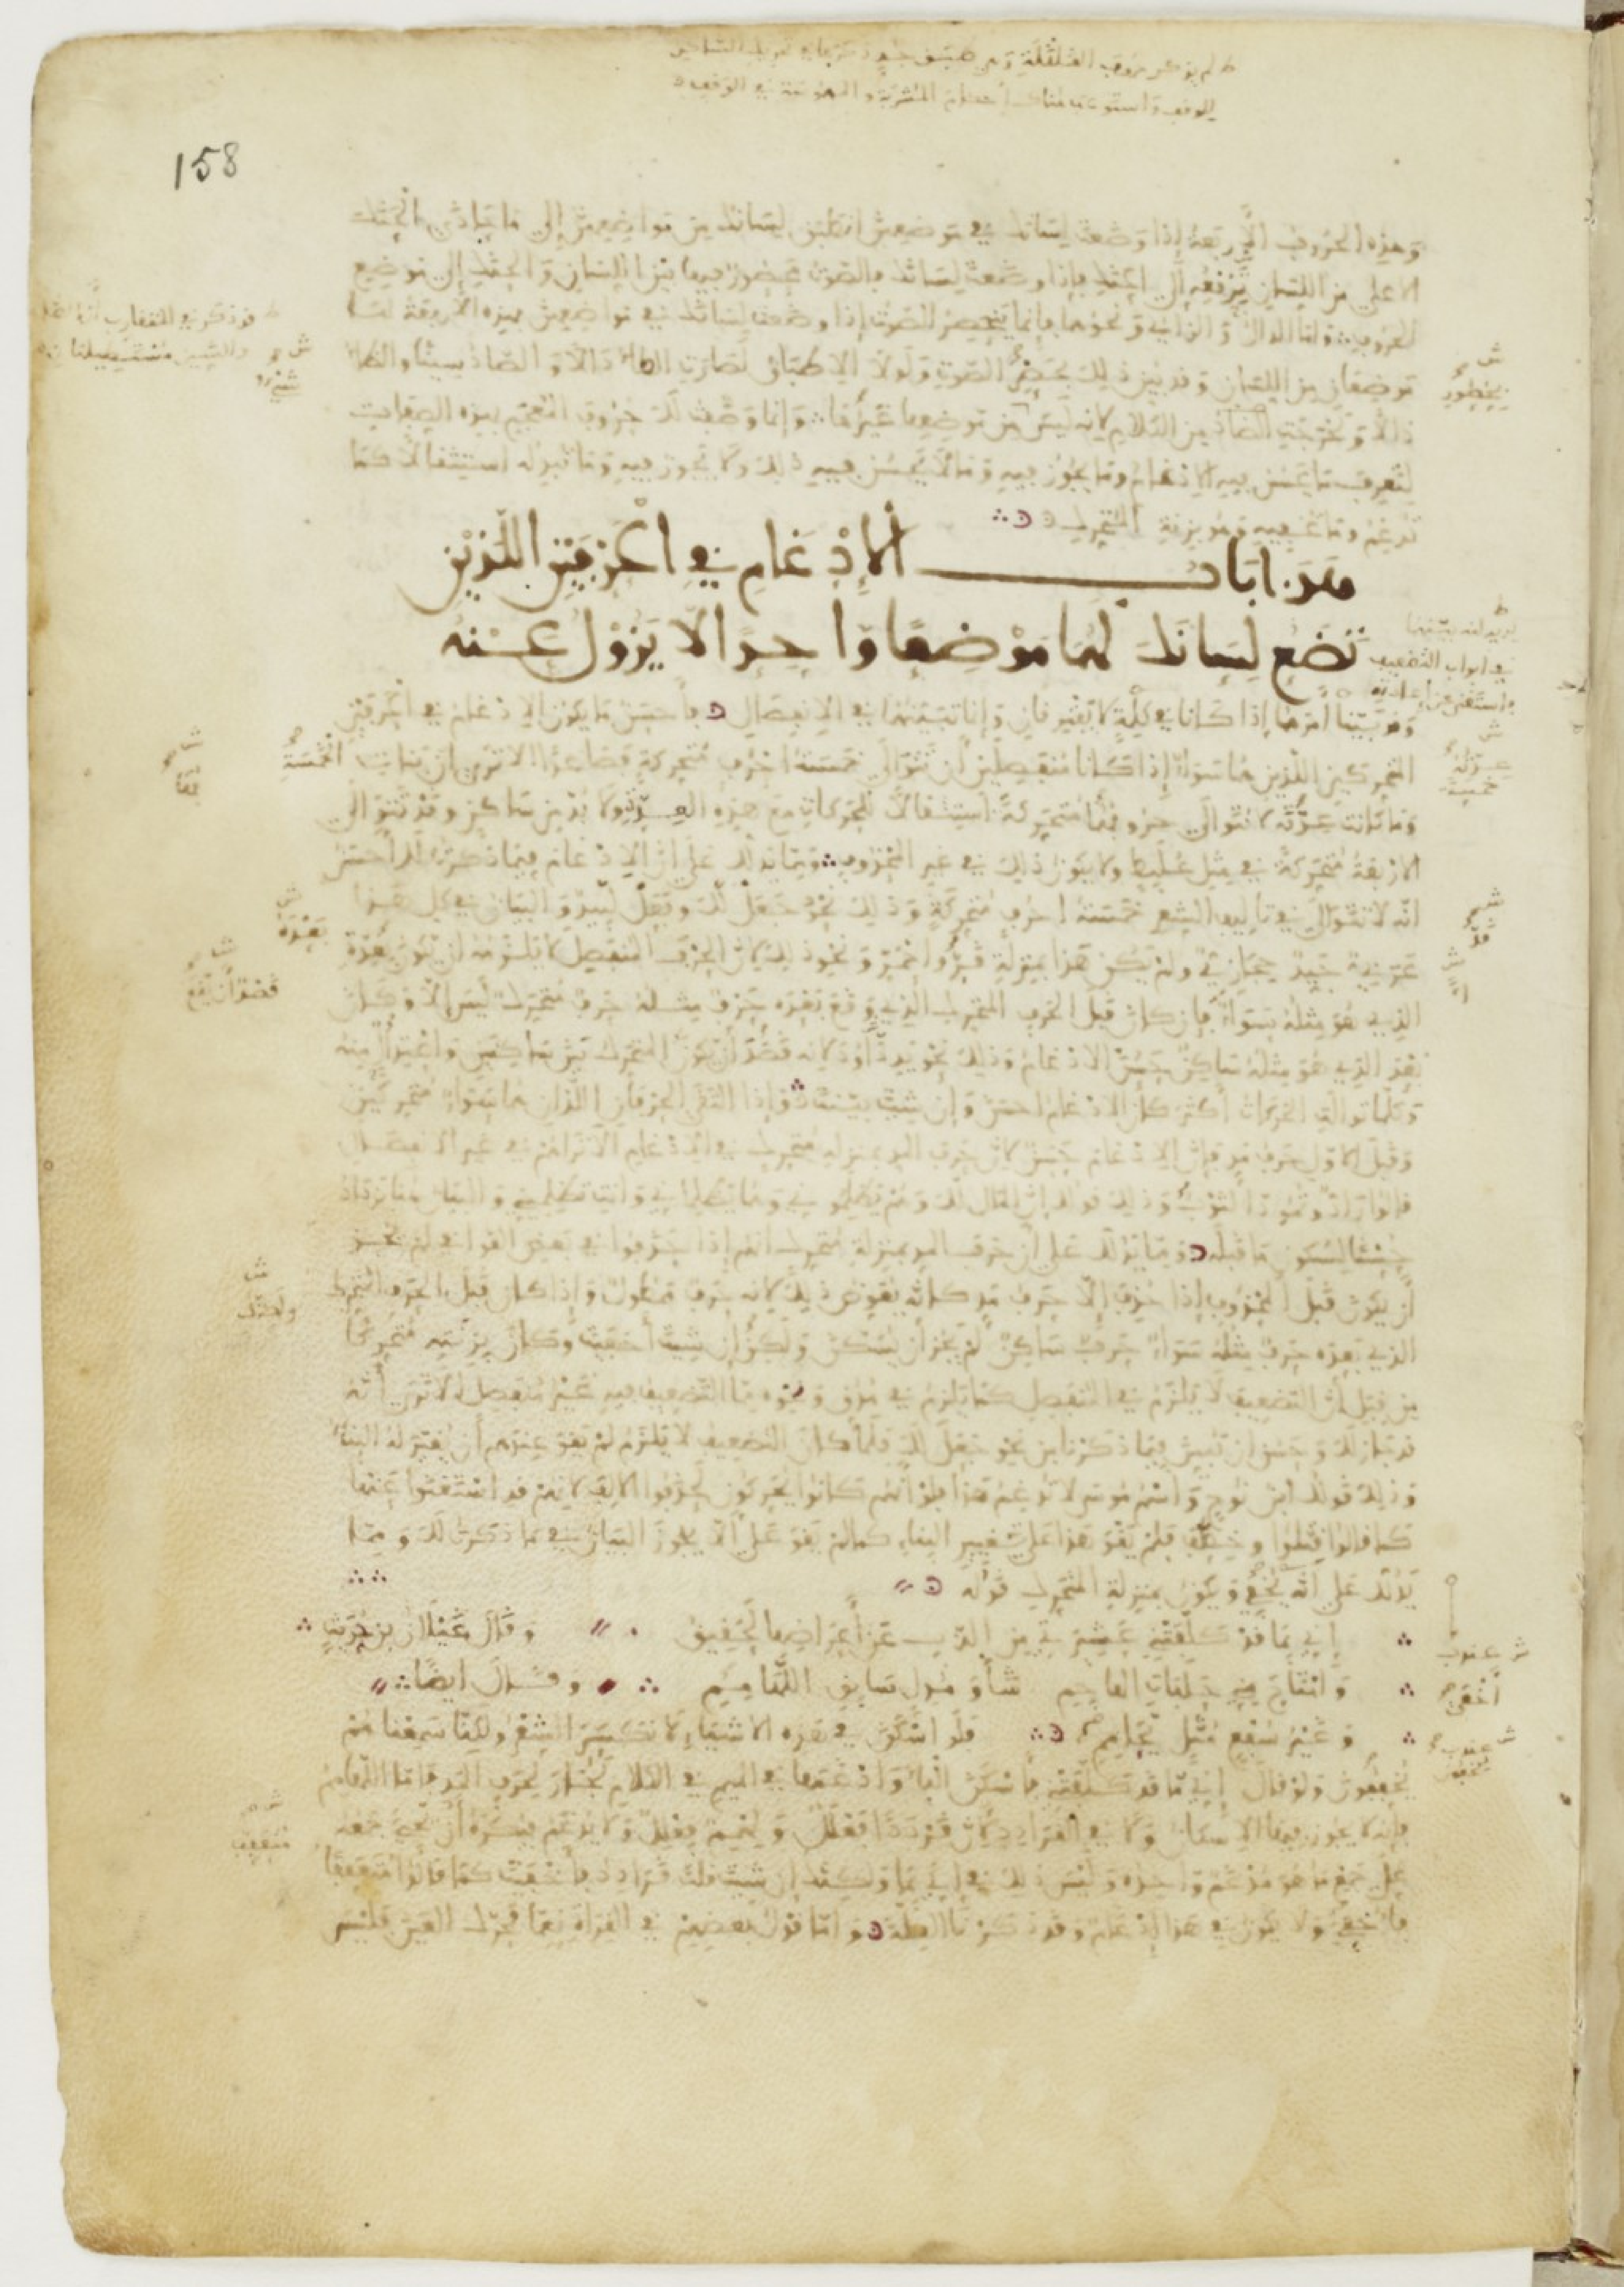 158
وهذه الحروف الأربعة إذا وضعت لسانك في موضعهن انطبق لسانك من مواضعهن إلى ما حاذى الحنك
الأعلى من اللسان ترفعه إلى الحنك فإذا وضعت لسانك فالصوت محصور فيما بين اللسان والحنك إلى موضع
الحروف وأما الدال والزاي ونحوهما فإنما ينحصر الصوت إذا وضعت لسانك في مواضعهن وهذه الأربعة لها
موضعان من اللسان وقد بين ذلك بحصر الصوت ولولا الإطباق لصارت الطاء دالا والصاد سينا والظاء
ذالا ولخرجت الضاد من الكلام لأنه ليس من موضعها غيرها وإنما وصفت لك حروف المعجم بهذه الصفات
لتعرف ما يحسن فيه الإدغام وما يجوز فيه وما لا يحسن فيه ذلك ولا يجوز فيه وما تبدله استثقالا كما
تدغم وما تخفيه وهو بزنة المتحرك
هذا باب الإدغام في الحرفين اللذين
تضع لسانك لهما موضعا واحدا لا يزول عنه
وقد بينا أمرهما إذا كانا في كلمة لا يفترقان وإنما نبينهما في الانفصال فأحسن ما يكون الإدغام في الحرفين
المتحركين اللذين هما سواء إذا كانا منفصلين أن تتوالى خمسة أحرف متحركة فصاعدا ألا ترى أن بنات الخمسة
وما كانت عدته لا تتوالى حروفها متحركة استثقالا للمتحركات مع هذه العدة ولا بد من ساكن وقد تتوالى
الأربعة متحركة في مثل علبط ولا يكون ذلك في غير المحذوف ومما يدلك على أن الإدغام فيما ذكرت لك أحسن
أنه لا تتوالى في تأليف الشعر خمسة أحرف متحركة وذلك نحو جعل لك وفعل لبيد والبيان في كل هذا
عربي جيد حجازي ولم يكن هذا بمنزلة قد واحمر ونحو ذلك لأن الحرف المنفصل لا يلزمه أن يكون بعده
الذي هو مثله سواء فإن كان قبل الحرف المتحرك الذي وقع بعده حرف مثله حرف متحرك ليس إلا وكان
بعد الذي هو مثله ساكن حسن الإدغام وذلك نحو يد داود لأنه قصد أن يكون المتحرك بين ساكنين واعتدال منه
وكلما توالت الحركات أكثر كان الإدغام أحسن وإن شئت بينت وإذا التقى الحرفان اللذان هما سواء متحركين
وقبل الأول حرف مد فإن الإدغام حسن لأن حرف المد بمنزلة متحرك في الإدغام ألا تراهم في غير الانفصال
قالوا راد وتمود الثوب وذلك قولك إن المال لك وهم يظلموني وهما يظلماني وأنت تظلميني والبيان ههنا يزداد
حسنا لسكون ما قبله ومما يدلك على أن حرف المد بمنزلة متحرك أنهم إذا حذفوا في بعض القوافي لم يجز
أن يكون قبل المحذوف إذا حذف إلا حرف مد كأنه يعوض ذلك لأنه حرف ممطول وإذا كان قبل الحرف المتحرك
الذي بعده حرف مثله سواء حرف ساكن لم يجز أن يسكن ولكن إن شئت أخفيت وكان بزنته متحركا
من قبل أن التضعيف لا يلزم في المنفصل كما يلزم في مدق ونحوه مما التضعيف فيه غير منفصل ألا ترى أنه
قد جاز لك وحسن أن تبين فيما ذكرنا من نحو جعل لك فلما كان التضعيف لا يلزم لم يقو عندهم أن يغير له البناء
وذلك قولك ابن نوح واسم موسى لا تدغم هذا فلو أنهم كانوا يحركون لحذفوا الألف لأنهم قد استغنوا عنها
كما قالوا قتلوا وخطف فلم يقو هذا على تغيير البناء كما لم يقو على ألا يجوز البيان فيما ذكرت لك ومما
يدلك على أنه يخفى ويكون بمنزلة المتحرك قوله
إني بما قد كلفتني عشيرتي من الذب عن أعراضها لحقيق وقال غيلان بن حريث
وامتاح مني حلبات الهاجم شأو مدل سابق اللهامم وقال أيضا
وغير سفع مثل يحامم فلو أسكن في هذه الأشياء لانكسر الشعر ولكنا سمعناهم
يخفون ولو قال إني ما قد كلفتني فأسكن الباء وأدغمها في الميم في الكلام لجاز لحرف المد فأما اللهامم
فإنه لا يجوز فيها الإسكان ولا في القرادد لأن قرددا فعلل ولهمم فعلل ولا يدغم فيكره أن يجيء جمعه
على جمع ما هو مدغم واحده وليس ذلك في إني بما ولكنك إن شئت قلت قرادد فأخفيت كما قالوا متعفف
فأخفي ولا يكون في هذا إدغام وقد ذكرنا العلة وأما قول بعضهم في القراءة نعما فحرك العين فليس